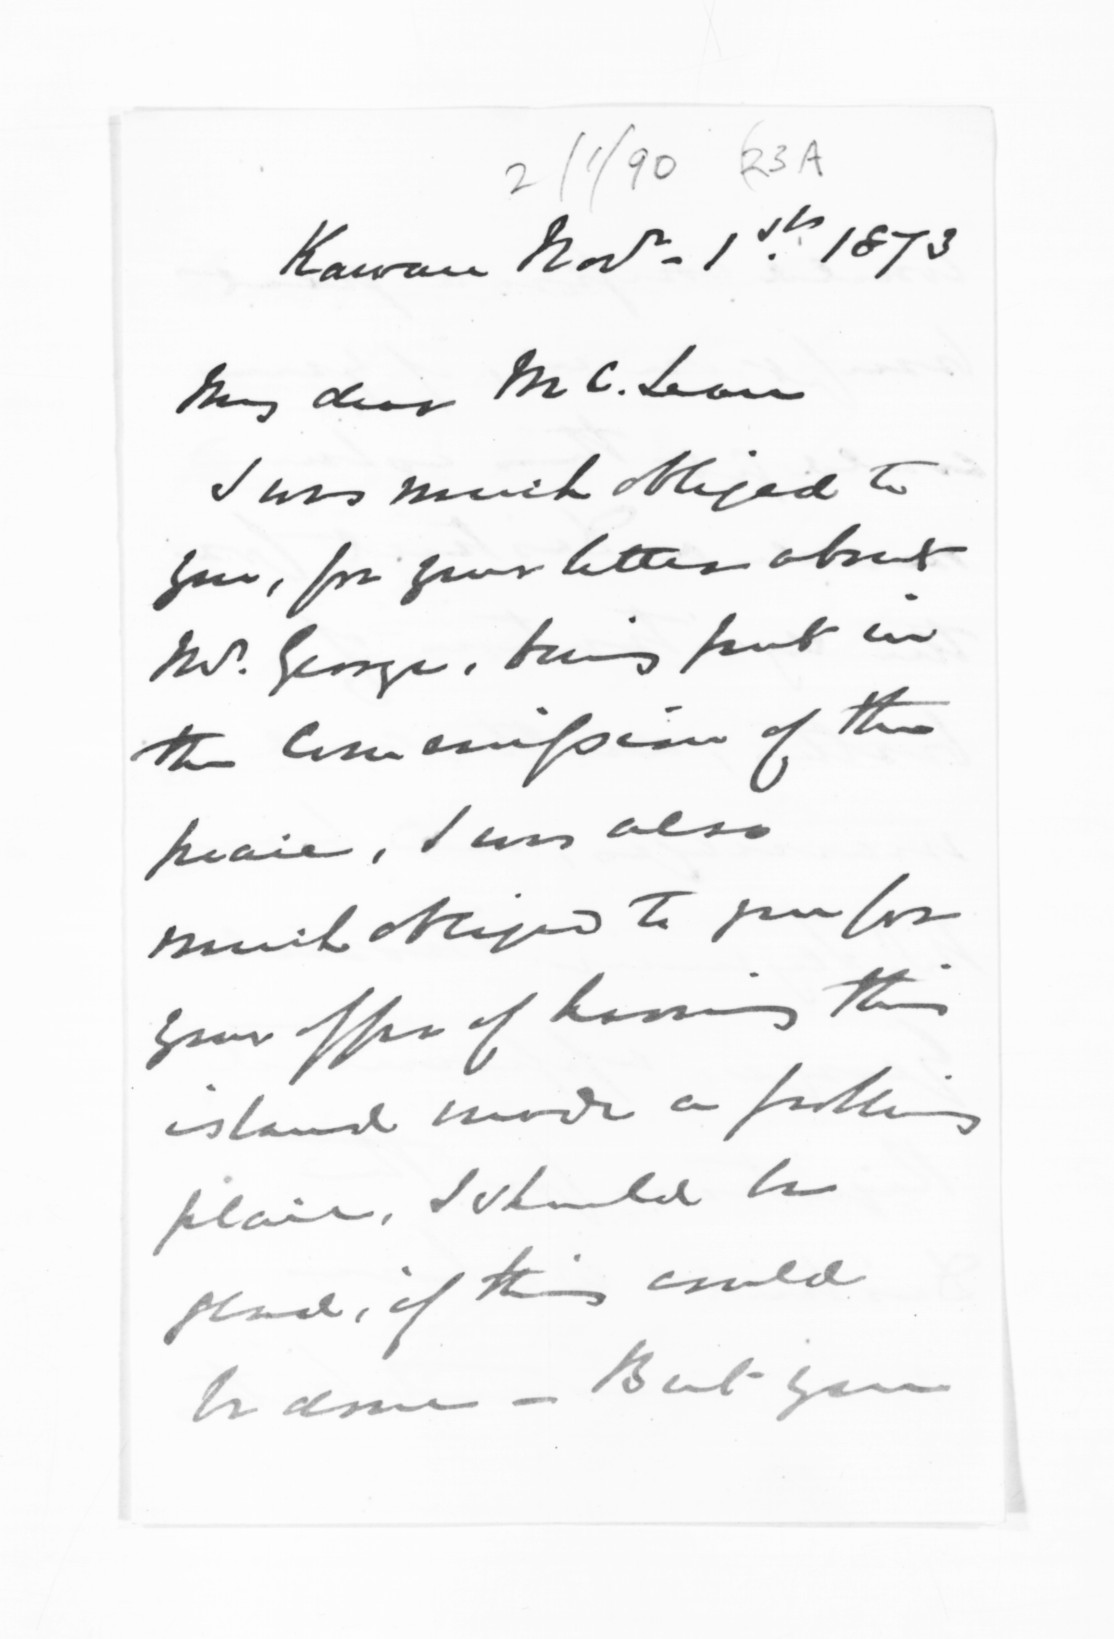 2/1/90 (23A
Kawau Novr. 1st. 1873
My dear McLean
I was much obliged to
you, for your letter about
Mr. George, being put in
the Commission of the
peace, I was also
much obliged to you for
your offer of having this
island made a polling
place, I should be
glad, if this could
be done - But you